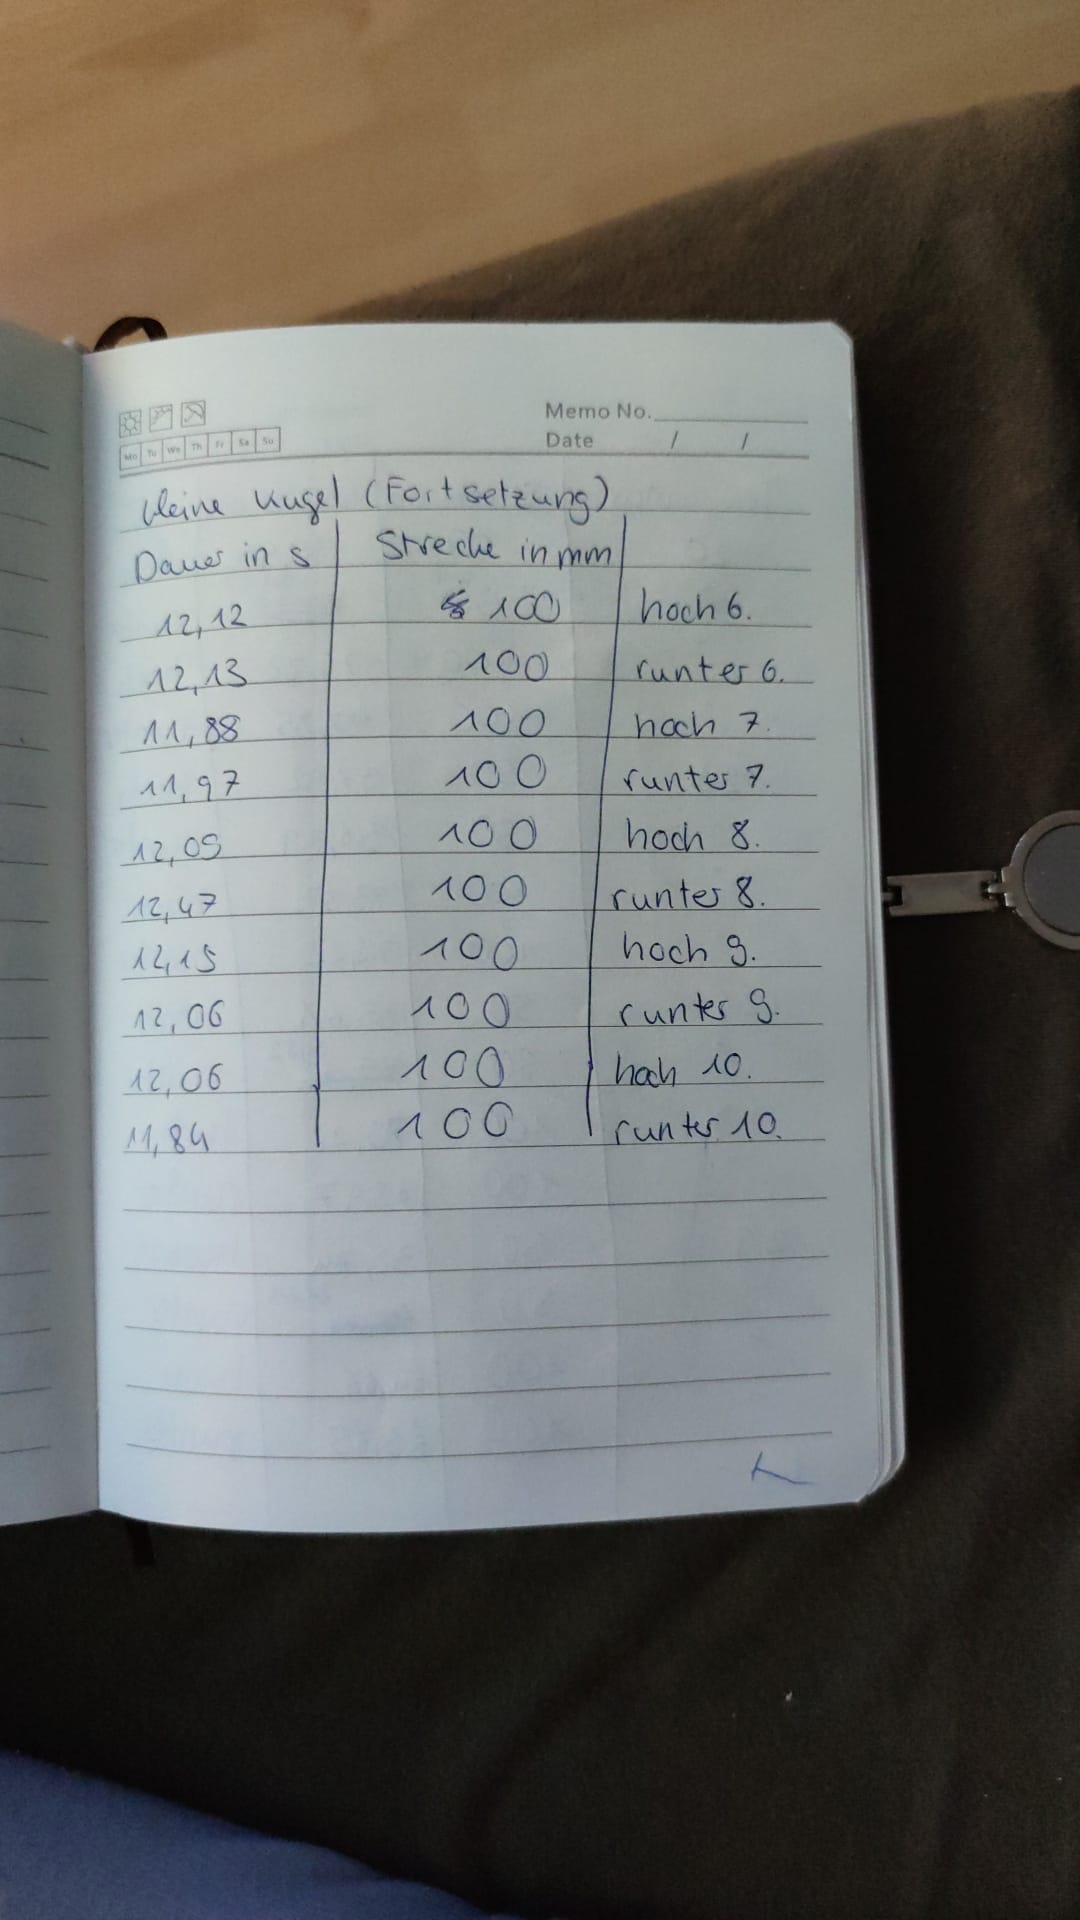 Memo No.
Mo Tu We Th Fr Sa Su Date / /
kleine Kugel (Fortsetzung)
Dauer in s Strecke in mm
12,12 100 hoch 6.
12,13 100 runter 6.
11,88 100 hoch 7.
11,97 100 runter 7.
12,09 100 hoch 8.
12,47 100 runter 8.
12,15 100 hoch 9.
12,06 100 runter 9.
12,06 100 hoch 10.
11,84 100 runter 10.